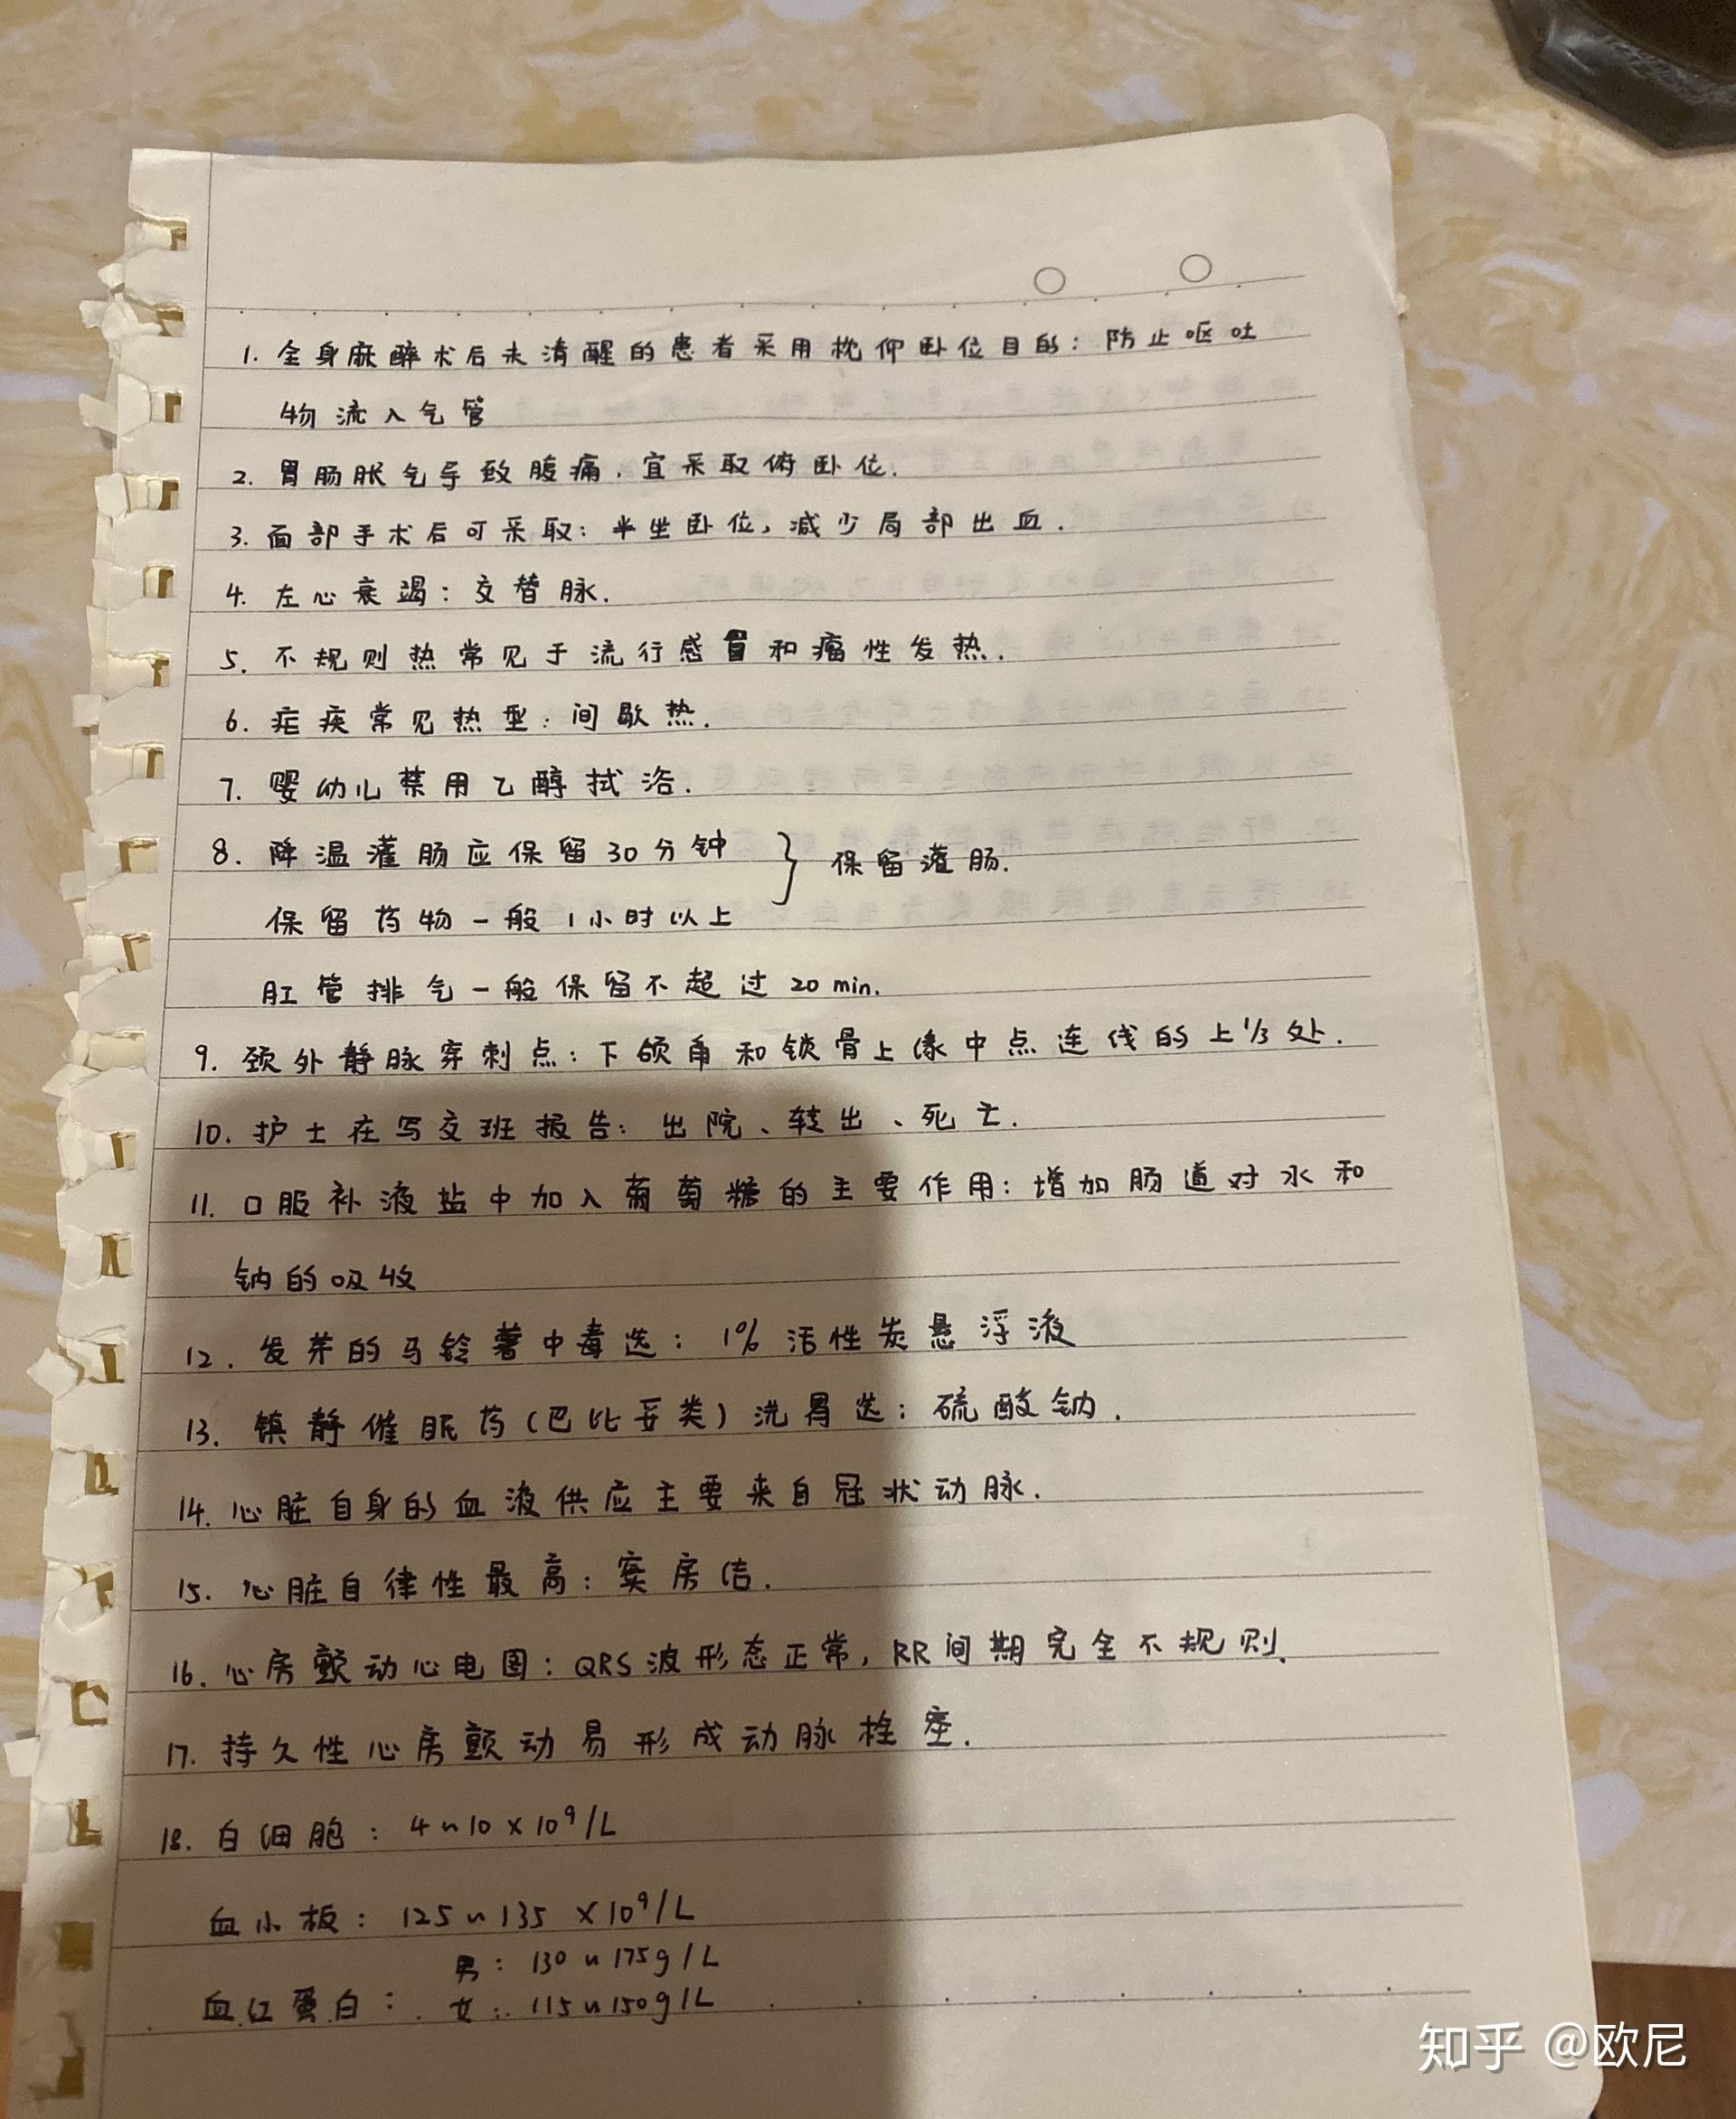 1. 全身麻醉术后未清醒的患者采用枕仰卧位目的：防止呕吐
物流入气管
2. 胃肠胀气导致腹痛，宜采取俯卧位.
3. 面部手术后可采取：半坐卧位，减少局部出血.
4. 左心衰竭：交替脉.
5. 不规则热常见于流行感冒和癌性发热.
6. 疟疾常见热型：间歇热.
7. 婴幼儿禁用乙醇拭浴.
8. 降温灌肠应保留30分钟 } 保留灌肠.
保留药物一般1小时以上
肛管排气一般保留不超过20min.
9. 颈外静脉穿刺点：下颌角和锁骨上缘中点连线的上1/3处.
10. 护士在写交班报告：出院、转出、死亡.
11. 口服补液盐中加入葡萄糖的主要作用：增加肠道对水和
钠的吸收
12. 发芽的马铃薯中毒选：1%活性炭悬浮液
13. 镇静催眠药(巴比妥类)洗胃选：硫酸钠.
14. 心脏自身的血液供应主要来自冠状动脉.
15. 心脏自律性最高：窦房结.
16. 心房颤动心电图：QRS波形态正常，RR间期完全不规则.
17. 持久性心房颤动易形成动脉栓塞.
18. 白细胞：4~10×10⁹/L
血小板：125~135×10⁹/L
男：130~175g/L
血红蛋白：女：115~150g/L
知乎 @欧尼